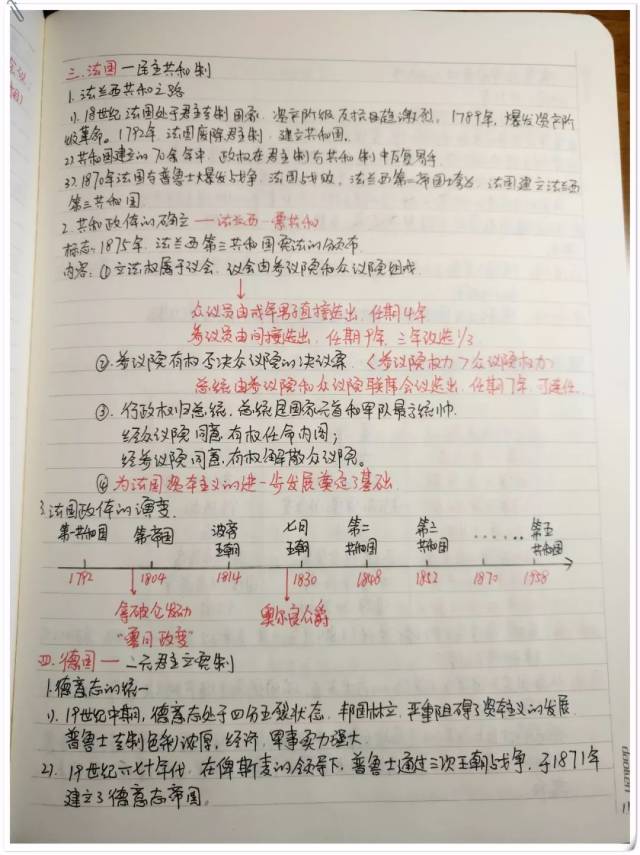 三.法国—民主共和制
1.法兰西共和之路
1).18世纪法国处于君主专制国家,资产阶级反抗日趋激烈。1789年,爆发资产阶
级革命。1792年法国废除君主制,建立共和国。
2)共和国建立的70余年中,政权在君主制与共和制中反复易手
3).1870年法国与普鲁士爆发战争,法国战败。法兰西第二帝国垮台,法国建立法兰西
第三共和国
2.共和政体的确立—法兰西一票共和
标志:1875年,法兰西第三共和国宪法的颁布
内容:①立法权属于议会,议会由参议院和众议院组成
众议员由成年男子直接选出,任期4年
参议员由间接选出,任期9年,三年改选1/3
②.参议院有权否决众议院的决议案.〈参议院权力>众议院权力〉
总统由参议院和众议院联席会议选出,任期7年,可连任.
③.行政权归总统,总统是国家元首和军队最高统帅.
经众议院同意,有权任命内阁;
经参议院同意,有权解散众议院。
④为法国资本主义的进一步发展奠定了基础
3.法国政体的演变.
第一共和国 第一帝国 波旁王朝 七月王朝 第二共和国 第二共和国 …… 第五共和国
1792 1804 1814 1830 1848 1852 1870 1958
拿破仑发动 奥尔良公爵
“雾月政变”
四.德国—二元君主立宪制
1.德意志的统一
1).19世纪中期,德意志处于四分五裂状态,邦国林立,严重阻碍了资本主义的发展
普鲁士专制色彩浓厚,经济,军事实力强大
2).19世纪六七十年代,在俾斯麦的领导下,普鲁士通过三次王朝战争,于1871年
建立了德意志帝国。